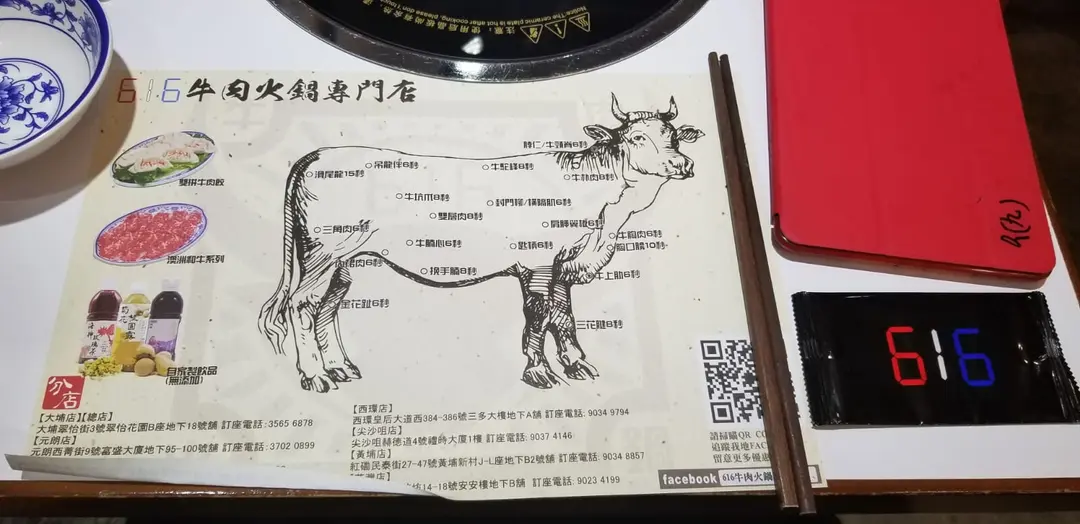 Notice: The ceramic plate is hot after cooking, please don't
注意: 使用后晶板尚有余熱
616牛肉火鍋專門店
頸仁/牛頸脊6秒
吊龍伴6秒
牛駝峰6秒
滑尾龍15秒
牛㓥肉8秒
牛坑爪8秒
封門腱/橫膈肌6秒
雙層肉8秒
肩胛翼板6秒
三角肉6秒
牛胸肉6秒
牛腩心6秒
匙柄6秒
胸口膶10秒
內裙肉6秒
挽手腩8秒
牛上肋6秒
金花趾6秒
三花腱8秒
雙拼牛肉餃
澳洲和牛系列
自家製飲品
(無添加)
分店
【大埔店】【總店】
大埔翠怡街3號翠怡花園B座地下18號舖 訂座電話: 3565 6878
【元朗店】
元朗西菁街9號富盛大廈地下95-100號舖 訂座電話: 3702 0899
【西環店】
西環皇后大道西384-386號三多大樓地下A舖 訂座電話: 9034 9794
【尖沙咀店】
尖沙咀赫德道4號禮時大廈1樓 訂座電話: 9037 4146
【黃埔店】
紅磡民泰街27-47號黃埔新村J-L座地下B2號舖 訂座電話: 9034 8857
14-18號安安樓地下B舖 訂座電話: 9023 4199
請掃瞄QR CO
追蹤我地FAC
留意更多優惠
facebook 616牛肉火鍋
616